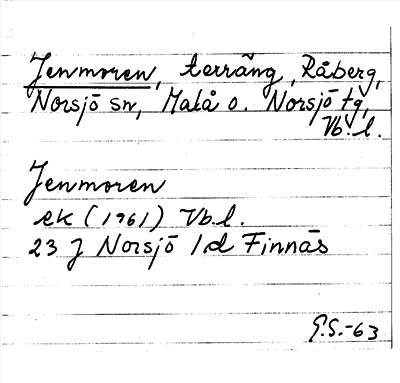 Jenmoren, terräng, Råberg,
Norsjö sn, Malå o. Norsjö tg,
Vb. l.
Jenmoren
ek (1961) Vb. l.
23 J Norsjö 1d Finnäs
G.S.-63